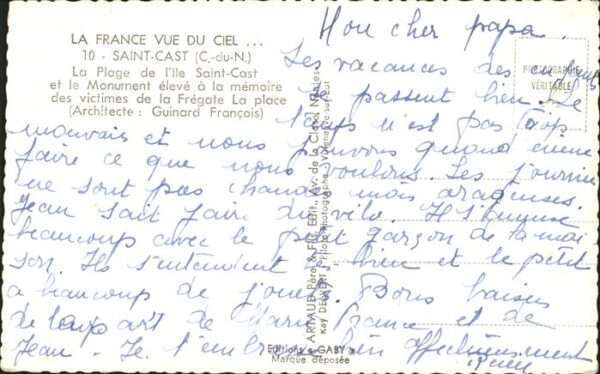 LA FRANCE VUE DU CIEL ...
10 - SAINT-CAST (C.-du-N.)
La Plage de l'Ile Saint-Cast
et le Monument élevé à la mémoire
des victimes de la Frégate La place
(Architecte : Guinard François)
PHOTOGRAPHIE
VÉRITABLE
Mon cher papa.
Les vacances des enfants
se passent bien. Le
temps n'est pas trop
mauvais et nous pouvons quand même
faire ce que nous voulons. Les journées
ne sont pas chaudes mais
Jean sait faire du vélo. Il s'amuse
beaucoup avec le petit garçon de la mai
son. Ils s'entendent bien et le petit
a beaucoup de jouets. Bons baisers
de la part de Marie France et de
Jean - Je t'embrasse bien affectueusement
ARTAUD Père & Fils, EDIT., Av. de la Close, Nantes
Editions « GABY »
Marque déposée